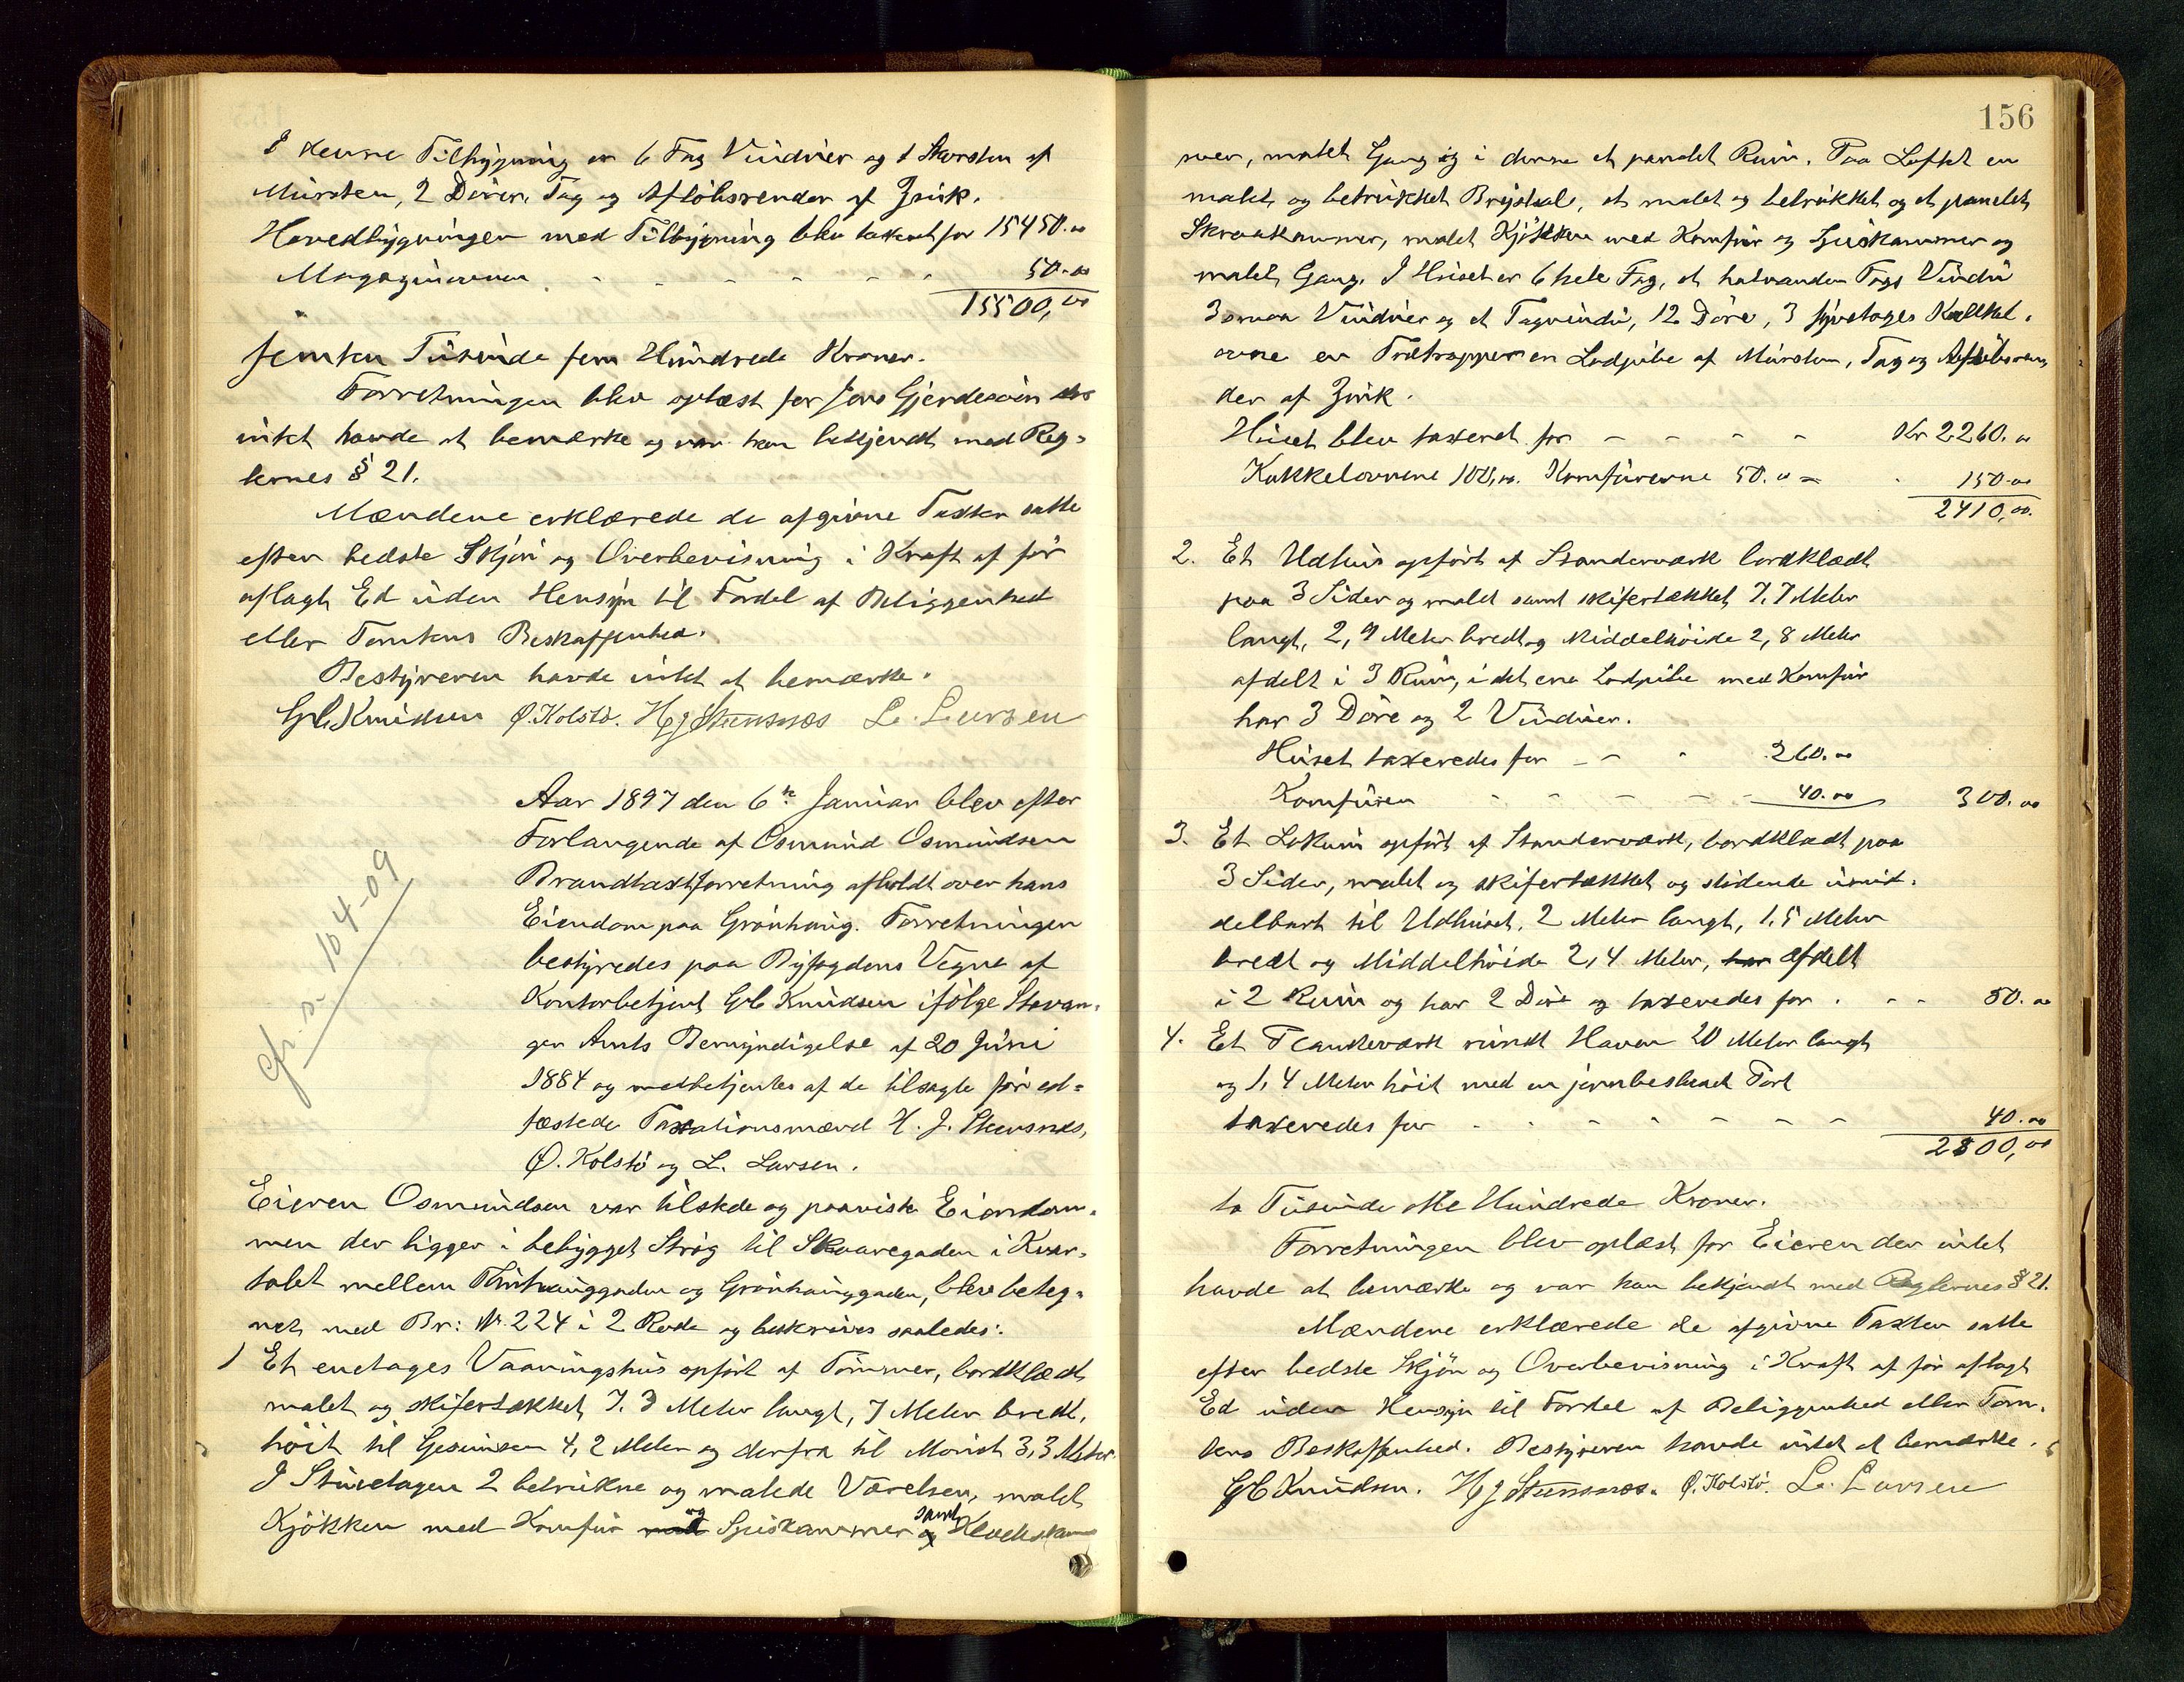 I denne Tilbygning er 6 Fag Vinduer og 1 Skorsten af
Mursten, 2 Döre. Tag og Aflöbsrender af Zink.
Hovedbygningen med Tilbygning blev taxeret for 15450.00
Magazinovnen - - - - - 50.00
15500,00
femten Tusinde fem Hundrede Kroner.
Forretningen blev oplæst for Jens Gjerdesøen der
intet havde at bemærke og var han bekjendt med Reg-
lernes § 21.
Mændene erklærede de afgivne Taxter satte
efter bedste Skjön og Overbevisning i Kraft af för
aflagt Ed uden Hensyn til Fordel af Beliggenhed
eller Tomtens Beskaffenhed.
Bestyreren havde intet at bemærke.
Gb. Knudsen Ø. Kolstö. H J Steensnæs L. Larsen
Aar 1897 den 6te Januar blev efter
Forlangende af Osmund Osmundsen
Brandtaxtforretning afholdt over hans
Eiendom paa Grönhaug. Forretningen
bestyredes paa Byfogdens Vegne af
Kontorbetjent Gb Knudsen ifölge Stavan-
ger Amts Bemyndigelse af 20 Juni
1884 og medbetjentes af de tilsagte för ed-
fæstede Taxationsmænd H. J. Steensnæs,
Ø. Kolstö og L. Larsen.
cfr. s. 104-09
Eieren Osmundsen var tilstede og paaviste Eiendom-
men der ligger i bebygget Strög til Skaaregaden i Kvar-
talet mellem gaden og Grönhauggaden, blev beteg-
net med Br: Nr. 224 i 2 Rode og beskrives saaledes:
1 Et enetages Vaaningshus opfört af Tömmer, bordklædt,
malet og skifertækket, 7.3 Meter langt, 7 Meter bredt,
höit til Gesimsen 4,2 Meter og derfra til Mönet 3,3 Meter.
I Stueetagen 2 betrukne og malede Værelser, malet
Kjökken med Komfur med og Spiskammer og samt Klædeskam
156
mer, malet Gang og i denne et panelet Rum. Paa Loftet en
malet og betrukket Brystsal, et malet og betrukket og et panelet
Skraakammer, malet Kjökken med Komfur og Spiskammer og
malet Gang. I Huset er 6 hele Fag, et halvanden Fags Vindu
3 smaa Vinduer og et Tagvindu, 12 Döre, 3 Kakkel-
ovne en Trætrappe en Lodpibe af Mursten, Tag og Aflöbsren,
der af Zink.
Huset blev taxeret for - - - - Kr 2260.00
Kakkelovnene 100,00. Komfurerne 50.00 = 150.00
2410,00.
2. Et Udhus opfört af Standerværk bordklædt
paa 3 Sider og malet samt skifertækket, 7.7 Meter
langt, 2,9 Meter bredt og Middelhöide 2,8 Meter
afdelt i 3 Rum, i det ene Lodpibe med Komfur
har 3 Döre og 2 Vinduer.
Huset taxeredes for - - - 260.00
Komfuren - - - - - 40.00 300.00
3. Et Lokum opfört af Standerværk, bordklædt paa
3 Sider, malet og skifertækket og stödende umid-
delbart til Udhuset, 2 Meter langt, 1,5 Meter
bredt og Middelhöide 2,4 Meter, har afdelt
i 2 Rum og har 2 Döre og taxeredes for . - - 50.00
4. Et Plankeværk rundt Haven 20 Meter langt
og 1,4 Meter höit med en jernbeslaaet Port
taxeredes for - - - - - - - 40.00
2800,00
to Tusinde otte Hundrede Kroner.
Forretningen blev oplæst for Eieren der intet
havde at bemærke og var han bekjendt med Reglernes § 21.
Mændene erklærede de afgivne Taxter satte
efter bedste Skjön og Overbevisning i Kraft af för aflagt
Ed uden Hensyn til Fordel af Beliggenhed eller Tom-
tens Beskaffenhed. Bestyreren havde intet at bemærke.
Gb Knudsen. H J Steensnæs. Ø. Kolstö. L. Larsen